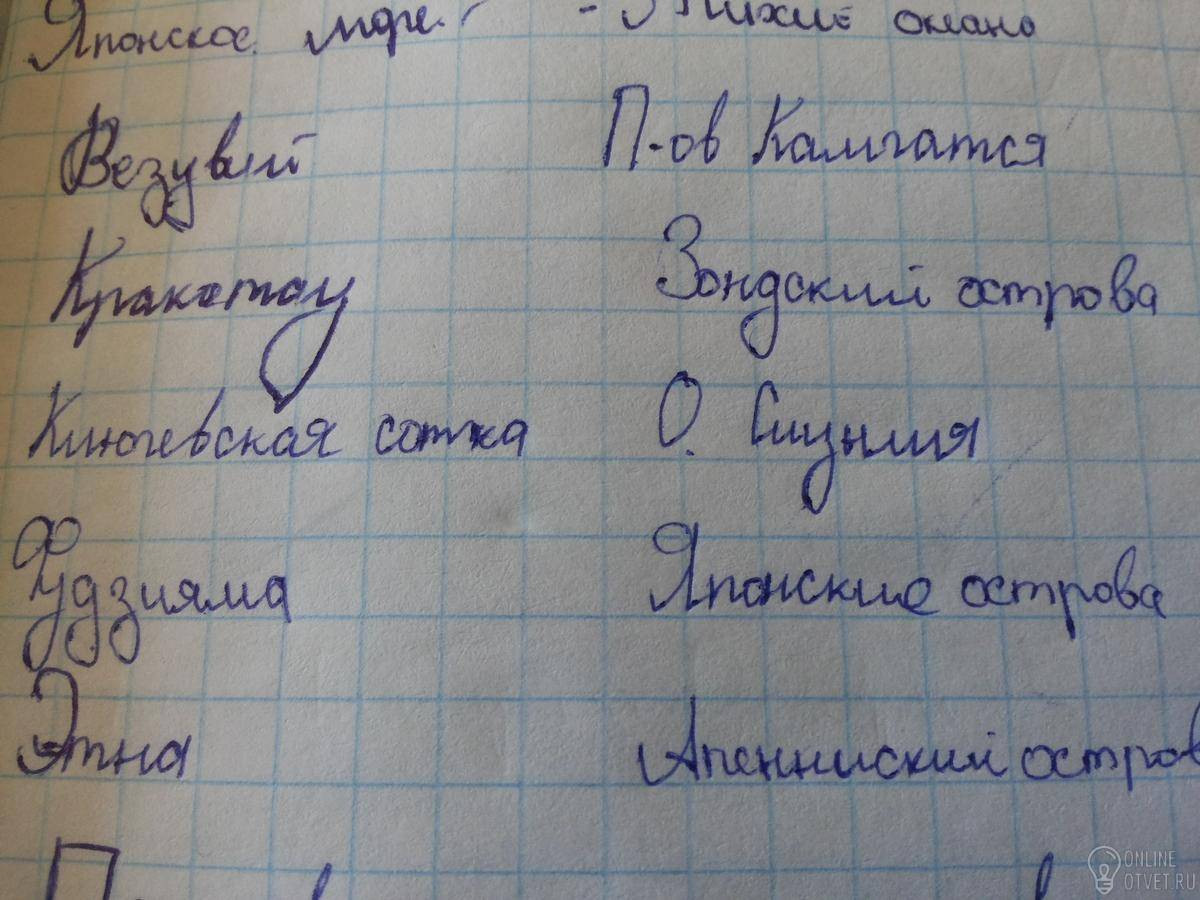 Японское море. - Тихие океана
Везувий П-ов Камчатся
Кракатау Зондский острова
Ключевская сотка О. Сицилия
Фудзияма Японские острова
Этна Апенниский остров
ONLINE
OTVET.RU